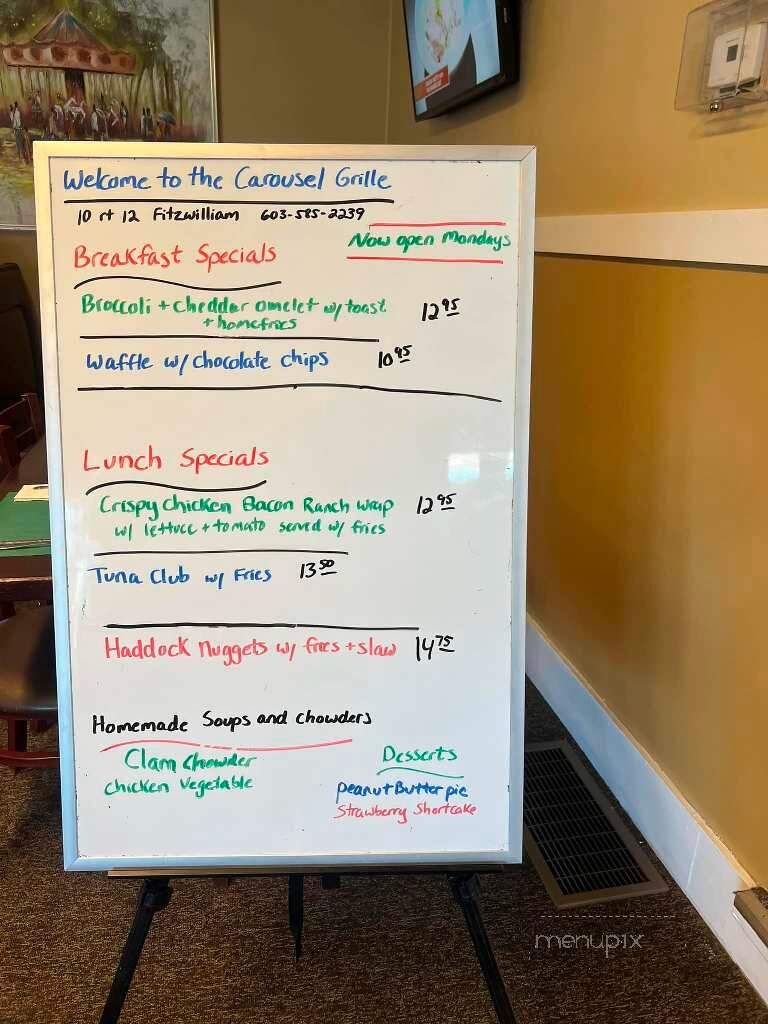 Welcome to the Carousel Grille
10 rt 12 Fitzwilliam 603-585-2239
Now open Mondays
Breakfast Specials
Broccoli + cheddar omelet w/ toast 12 95
+ homefries
Waffle w/ chocolate chips 10 95
Lunch Specials
Crispy Chicken Bacon Ranch Wrap 12 95
w/ lettuce + tomato served w/ fries
Tuna Club w/ Fries 13 50
Haddock Nuggets w/ fries + slaw 14 75
Homemade Soups and chowders
Clam Chowder
chicken vegetable
Desserts
peanut Butter pie
Strawberry Shortcake
menupix